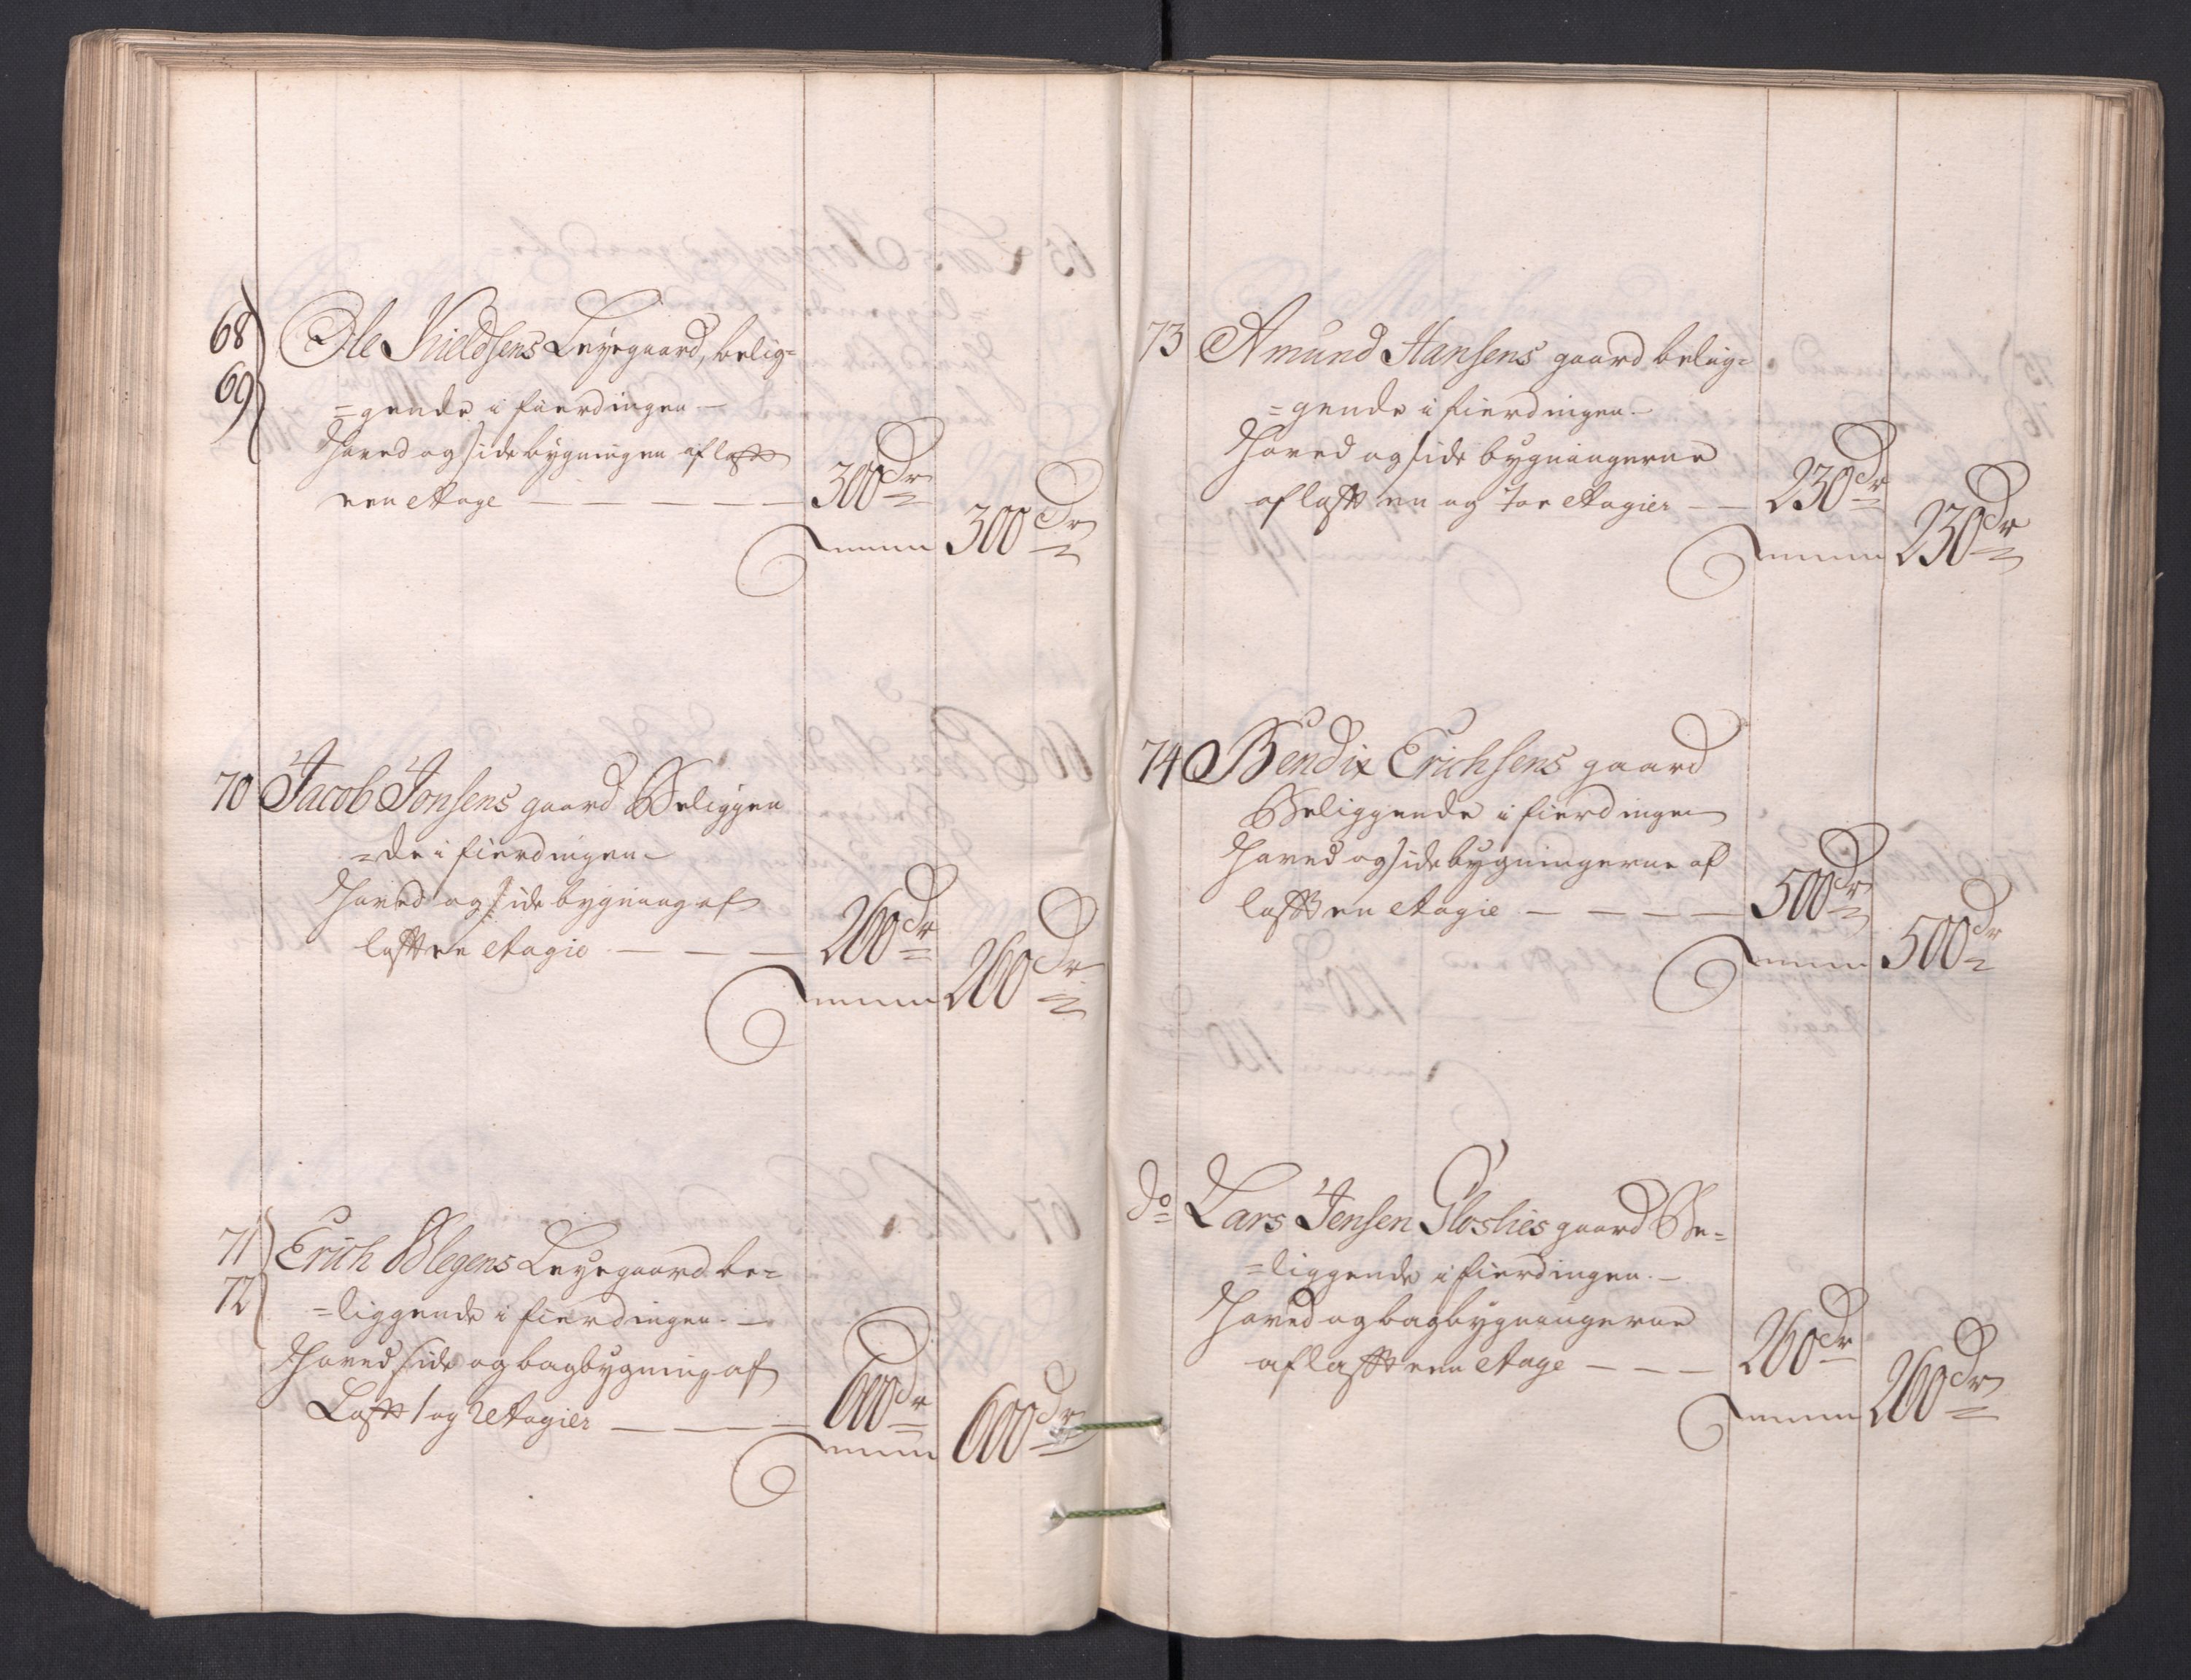 68
69
Ole Kieldsens Leyegaard, belig=
=gende i fierdingen —
Hoved og side bygningen af laft
een Etage — — — — — 300 Dr
Summa 300 Dr
70 Jacob Jonsens gaard Beliggen
=de i fierdingen
Hoved og side bygning af
laft en Etagie — — — 260 Dr
Summa 260 Dr
71
72
Erich Blegens Leyegaard be=
=liggende i fierdingen. —
Hoved side og bagbygning af
Laft 1 og 2 Etagier — — — 600 Dr
Summa 600 Dr
73 Amund Hansens gaard belig=
=gende i fierdingen.
Hoved og side bygningerne
af laft en og toe Etagier — — 230 Dr
Summa 230 Dr
74 Bendix Erichsens gaard
Beliggende i fierdingen
Hoved og side bygningerne af
laft en Etagie — — — — 500 Dr
Summa 500 Dr
do Lars Jensen gaard Be=
=liggende i fierdingen. —
Hoved og bagbygningerne
af laft een Etage — — — 260 Dr
Summa 260 Dr